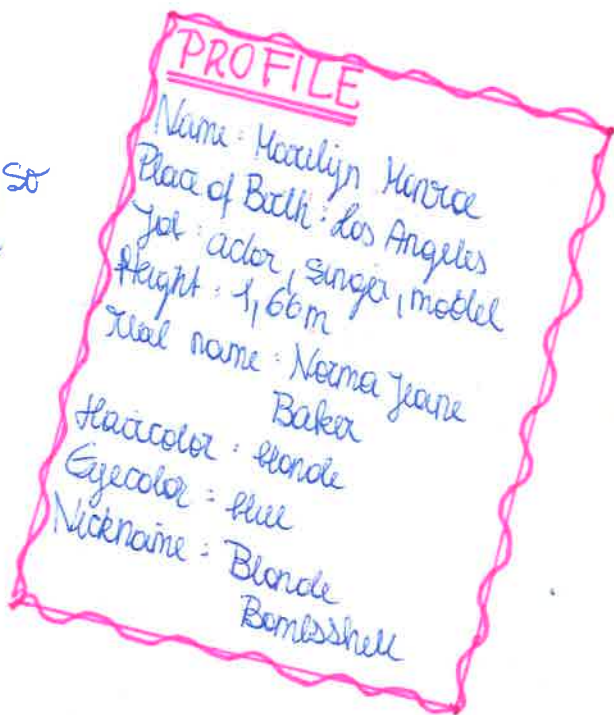 So
PROFILE
Name: Marelijn Monroe
Place of Birth: Los Angeles
Job: actor, singer, model
Height: 1,66m
real name: Norma Jeane
Baker
Haircolor: blonde
Eyecolor: blue
Nickname: Blonde
Bombsshell